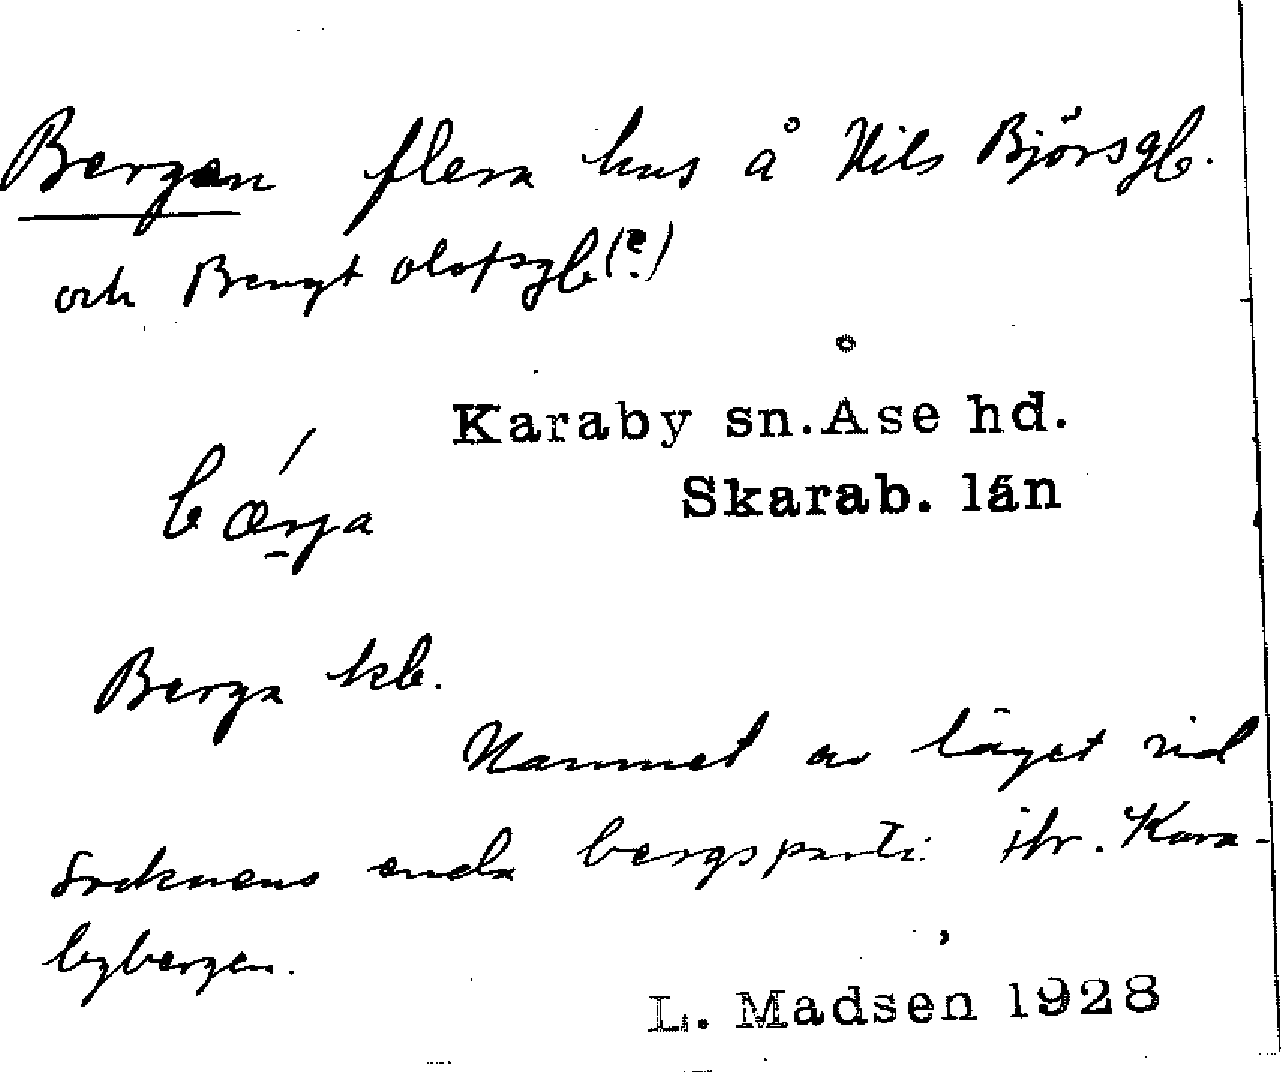 Bergen flera hus å Nils Björsgb.
och Bengt Olofsgb (?)
Karaby sn. Åse hd.
Skarab. län
bærja
Berga kb.
Namnet av läget vid
socknens enda bergsparti jfr. Kara-
bybergen.
L. Madsen 1928